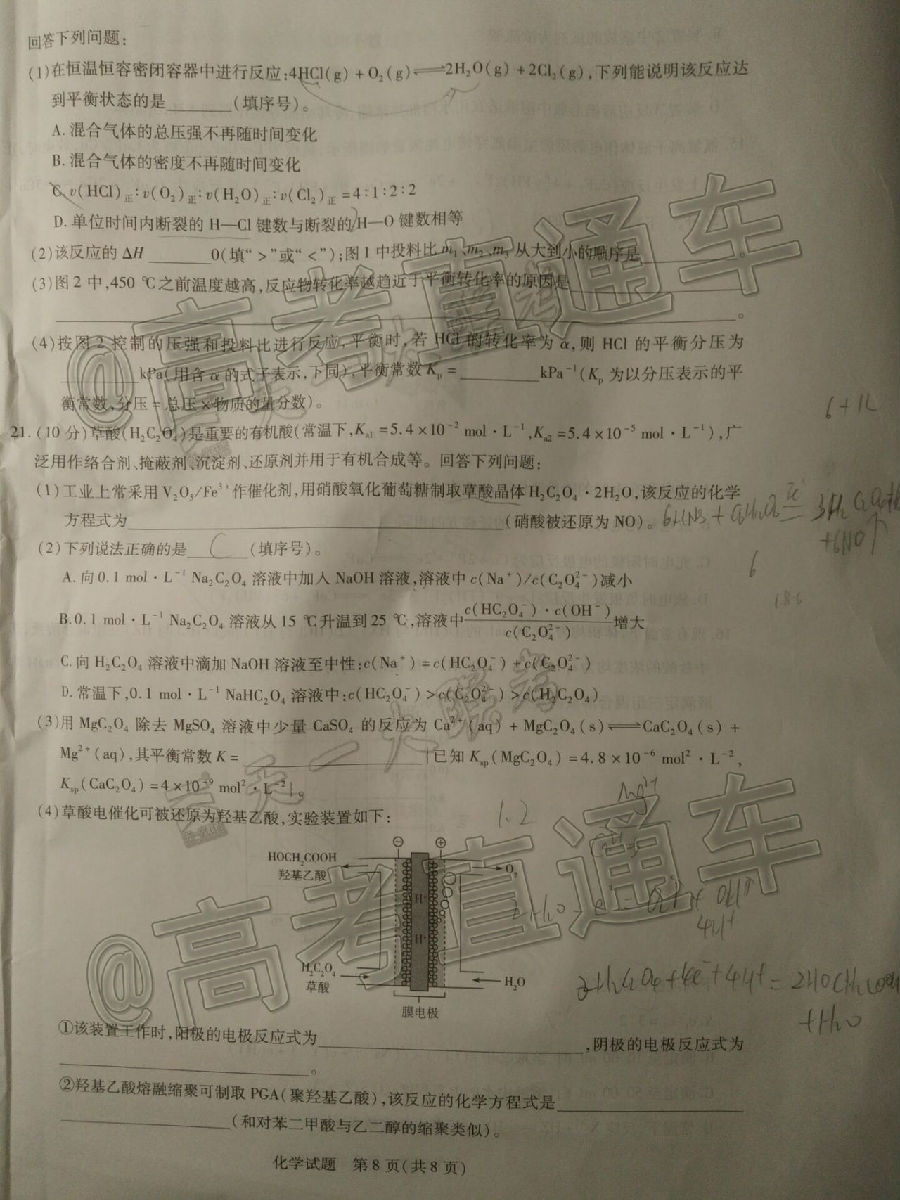 回答下列问题:
(1)在恒温恒容密闭容器中进行反应:4HCl(g)+O₂(g)⇌2H₂O(g)+2Cl₂(g),下列能说明该反应达
到平衡状态的是______(填序号)。
A.混合气体的总压强不再随时间变化
B.混合气体的密度不再随时间变化
C.v(HCl)正:v(O₂)正:v(H₂O)正:v(Cl₂)正=4:1:2:2
D.单位时间内断裂的H—Cl键数与断裂的H—O键数相等
(2)该反应的ΔH ______0(填“>”或“<”);图1中投料比m₁、m₂、m₃从大到小的顺序是______。
(3)图2中,450 ℃之前温度越高,反应物转化率越趋近于平衡转化率的原因是______
______。
(4)按图2控制的压强和投料比进行反应,平衡时,若HCl的转化率为α,则HCl的平衡分压为
______kPa(用含α的式子表示,下同),平衡常数Kp=______kPa⁻¹(Kp为以分压表示的平
衡常数,分压=总压×物质的量分数)。
6+12
21.(10分)草酸(H₂C₂O₄)是重要的有机酸(常温下,Ka1=5.4×10⁻² mol·L⁻¹,Ka2=5.4×10⁻⁵ mol·L⁻¹),广
泛用作络合剂、掩蔽剂、沉淀剂、还原剂并用于有机合成等。回答下列问题:
(1)工业上常采用V₂O₅/Fe³⁺作催化剂,用硝酸氧化葡萄糖制取草酸晶体H₂C₂O₄·2H₂O,该反应的化学
方程式为______(硝酸被还原为NO)。
+6NO↑
(2)下列说法正确的是 C (填序号)。
6
A.向0.1 mol·L⁻¹ Na₂C₂O₄溶液中加入NaOH溶液,溶液中c(Na⁺)/c(C₂O₄²⁻)减小
B.0.1 mol·L⁻¹ Na₂C₂O₄溶液从15 ℃升温到25 ℃,溶液中c(HC₂O₄⁻)·c(OH⁻)/c(C₂O₄²⁻)增大
C.向H₂C₂O₄溶液中滴加NaOH溶液至中性:c(Na⁺)=c(HC₂O₄⁻)+c(C₂O₄²⁻)
D.常温下,0.1 mol·L⁻¹ NaHC₂O₄溶液中:c(HC₂O₄⁻)>c(C₂O₄²⁻)>c(H₂C₂O₄)
(3)用MgC₂O₄除去MgSO₄溶液中少量CaSO₄的反应为Ca²⁺(aq)+MgC₂O₄(s)⇌CaC₂O₄(s)+
Mg²⁺(aq),其平衡常数K=______[已知Ksp(MgC₂O₄)=4.8×10⁻⁶ mol²·L⁻²,
Ksp(CaC₂O₄)=4×10⁻⁹ mol²·L⁻²]。
1.2
(4)草酸电催化可被还原为羟基乙酸,实验装置如下:
⊖ ⊕
HOCH₂COOH
羟基乙酸
O₂
H⁺
H⁺
H₂C₂O₄
草酸
H₂O
膜电极
①该装置工作时,阳极的电极反应式为______,阴极的电极反应式为
______。
②羟基乙酸熔融缩聚可制取PGA(聚羟基乙酸),该反应的化学方程式是______
______(和对苯二甲酸与乙二醇的缩聚类似)。
化学试题 第8页(共8页)
@高考直通车
天一大联考
@高考直通车